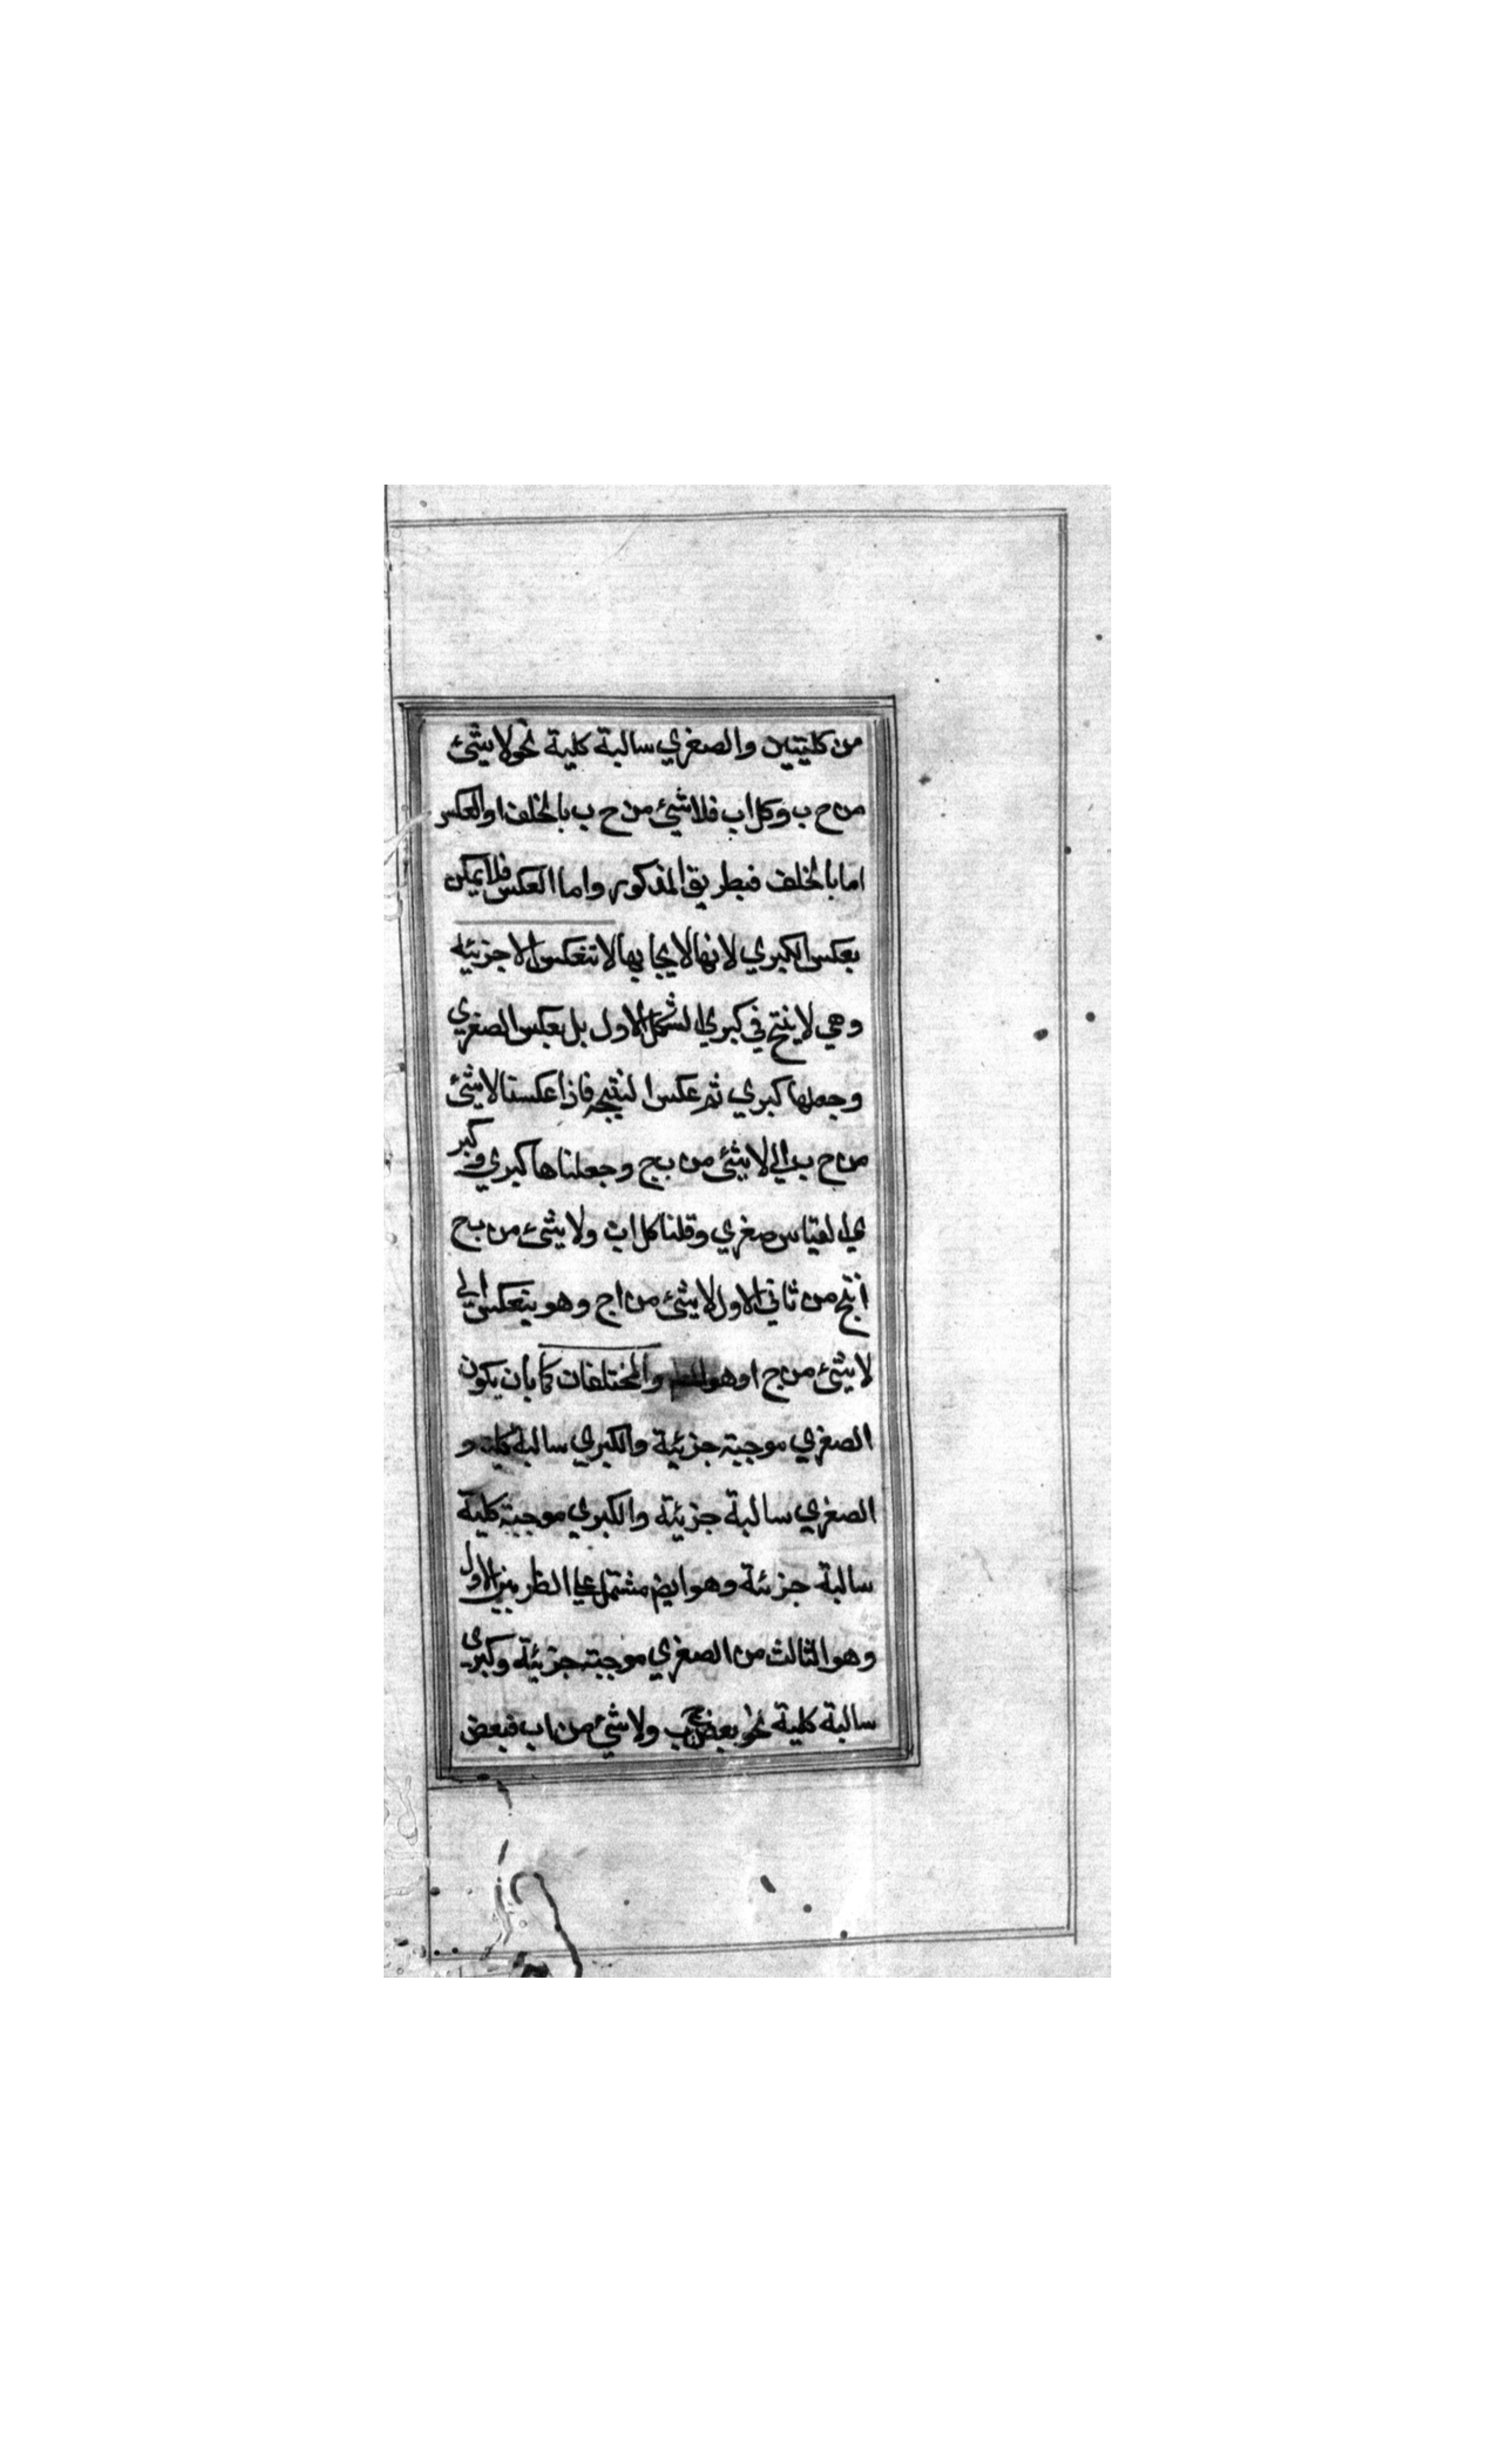 من كليتين والصغري سالبة كلية نحو لا شئ
من ح ب وكل اب فلا شئ من ح ب بالخلف او العكس
اما بالخلف فبطريق المذكور واما العكس فلا يمكن
بعكس الكبري لانها لايجابها لا تنعكس الا جزئية
وهي لا ينتج في كبري الشكل الاول بل بعكس الصغري
وجعلها كبري ثم عكس النتيجه فاذا عكستا لا شئ
من ح ب الي لا شئ من ب ج وجعلناها كبري وكبر
ي القياس صغري وقلنا كل اب ولا شئ من ب ج
انتج من ثاني الاول لا شئ من اج وهو ينعكس الي
لا شئ من ج ا وهو والمختلفات كما بان يكون
الصغري موجبة جزئية والكبري سالبة كلية و
الصغري سالبة جزئية والكبري موجبة كلية
سالبة جزئة وهو ايض مشتمل علي الضربين الاول
وهو الثالث من الصغري موجبة جزئية وكبرى
سالبة كلية نحو بعض ج ب ولا شئ من اب فبعض